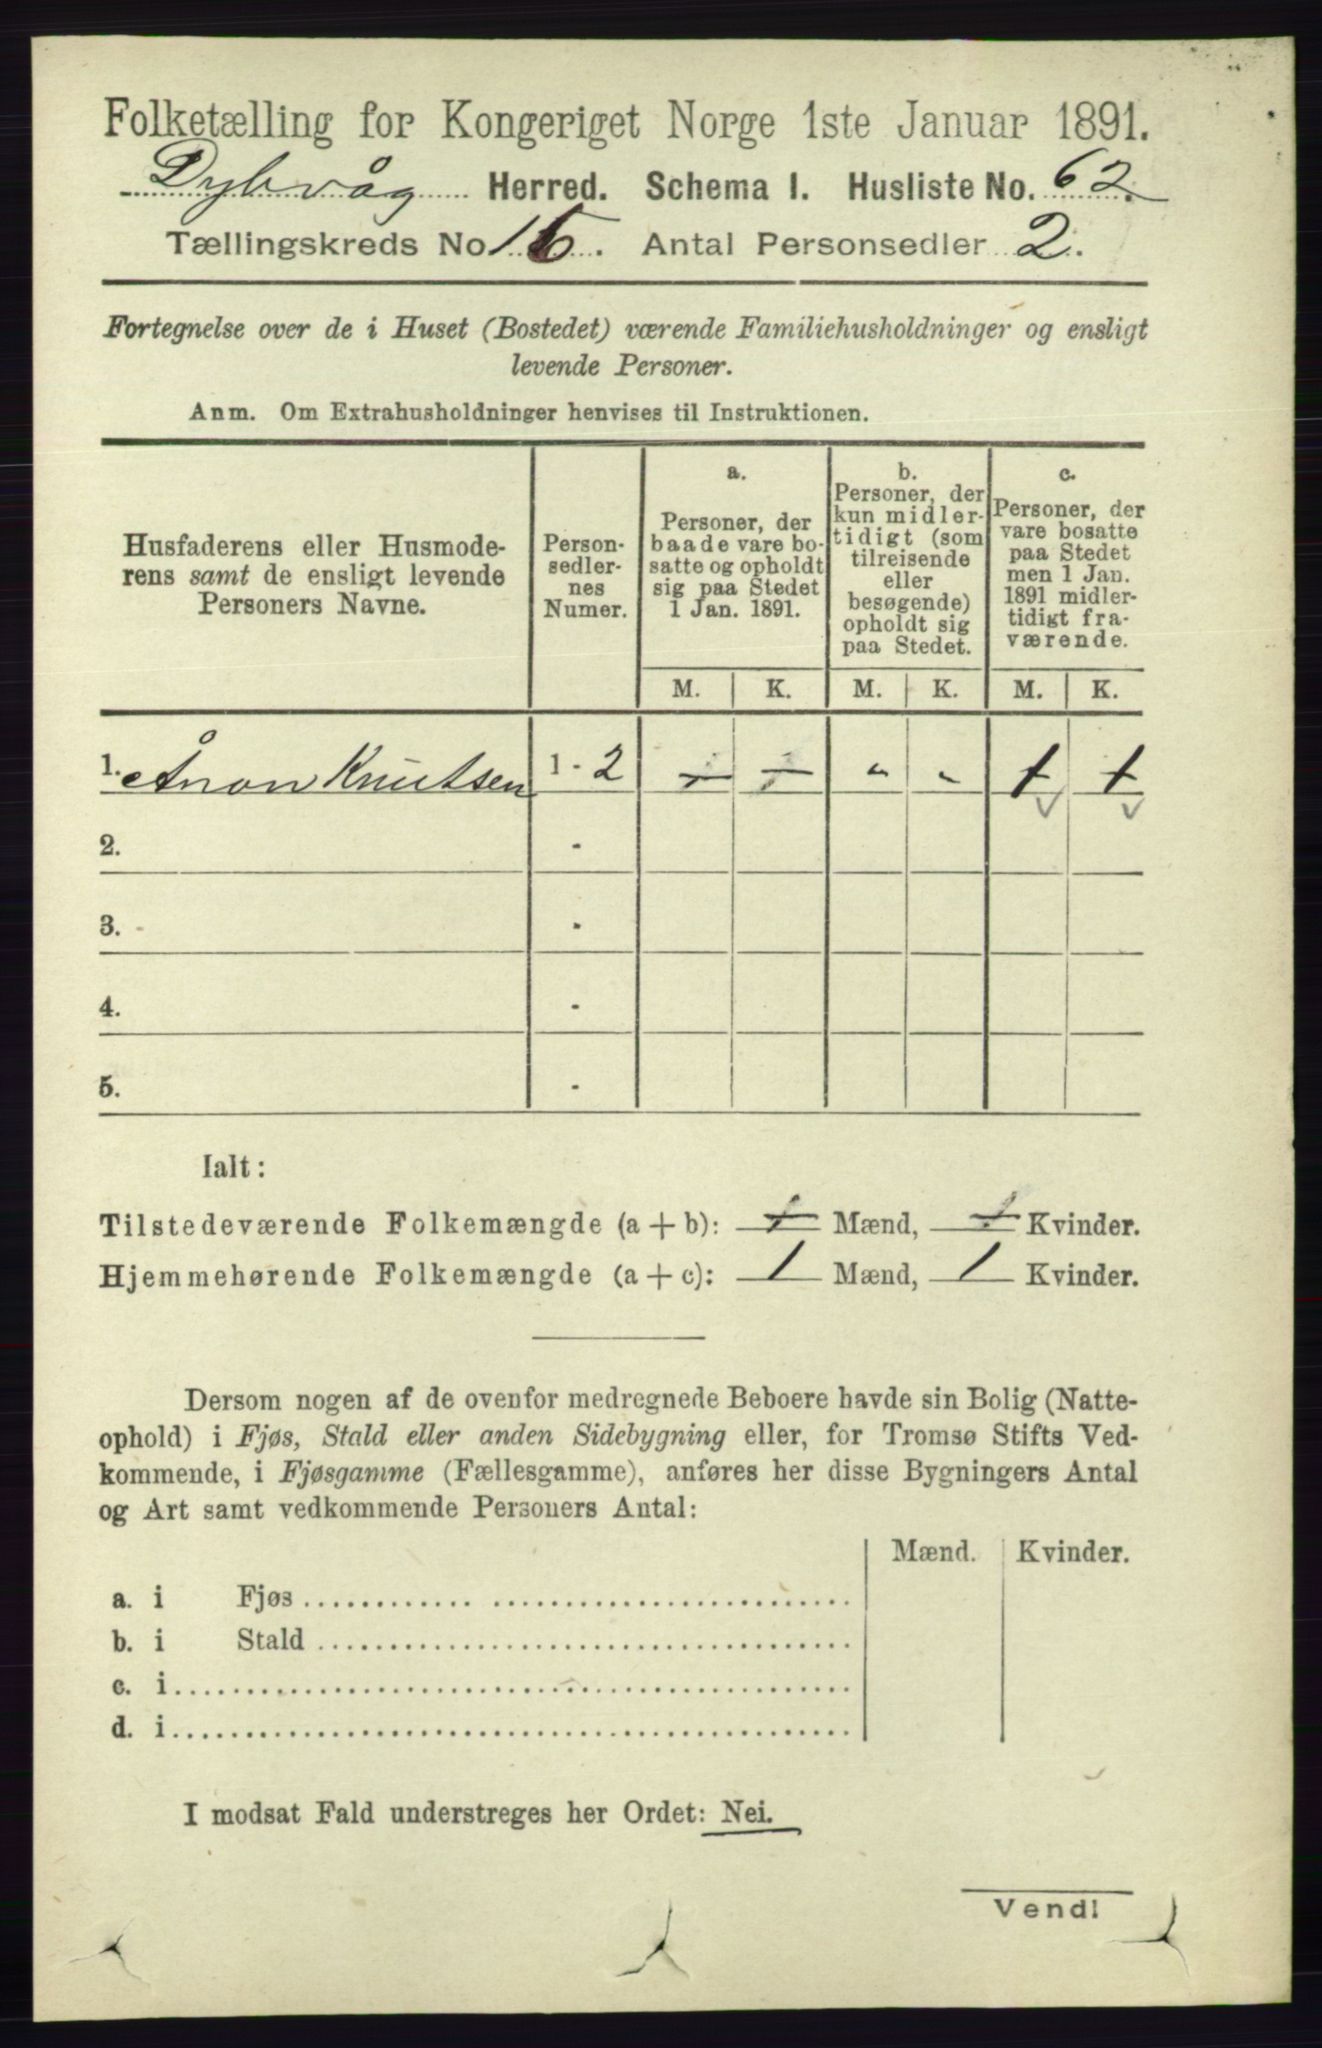 Folketælling for Kongeriget Norge 1ste Januar 1891.
Dybvåg Herred. Schema I. Husliste No. 62.
Tællingskreds No. . Antal Personsedler 2.
Fortegnelse over de i Huset (Bostedet) værende Familiehusholdninger og ensligt
levende Personer.
Anm. Om Extrahusholdninger henvises til Instruktionen.
Husfaderens eller Husmode-
rens samt de ensligt levende
Personers Navne.
Person-
sedler-
nes
Numer.
a.
Personer, der
baade vare bo-
satte og opholdt
sig paa Stedet
1 Jan. 1891.
b.
Personer, der
kun midler-
tidigt (som
tilreisende
eller
besøgende)
opholdt sig
paa Stedet.
c.
Personer, der
vare bosatte
paa Stedet
men 1 Jan.
1891 midler-
tidigt fra-
værende.
M. K. M. K. M. K.
1. Ånon Knutsen 1 - 2 1 1 " " 1 1
2. -
3. -
4. -
5. -
Ialt:
Tilstedeværende Folkemængde (a + b): 1 Mænd, 1 Kvinder.
Hjemmehørende Folkemængde (a + c): 1 Mænd, 1 Kvinder.
Dersom nogen af de ovenfor medregnede Beboere havde sin Bolig (Natte-
ophold) i Fjøs, Stald eller anden Sidebygning eller, for Tromsø Stifts Ved-
kommende, i Fjøsgamme (Fællesgamme), anføres her disse Bygningers Antal
og Art samt vedkommende Personers Antal:
Mænd. Kvinder.
a. i Fjøs
b. i Stald
c. i
d. i
I modsat Fald understreges her Ordet: Nei.
Vend!